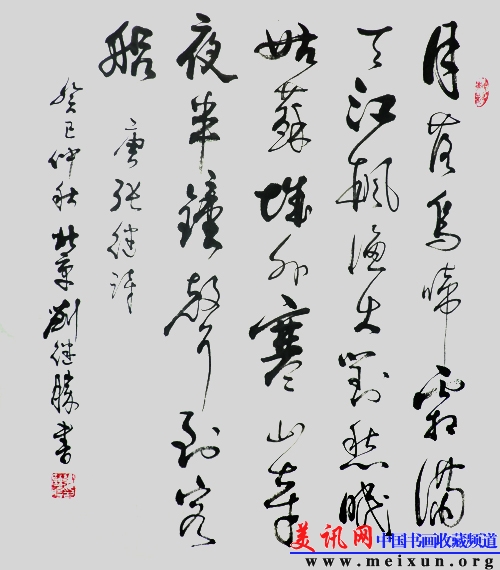 月落烏啼霜滿
天江楓漁火對愁眠
姑蘇城外寒山寺
夜半鐘聲到客
船
唐張继詩
癸巳仲秋北京劉继勝書
美讯网 中国书画收藏频道
www.meixun.org